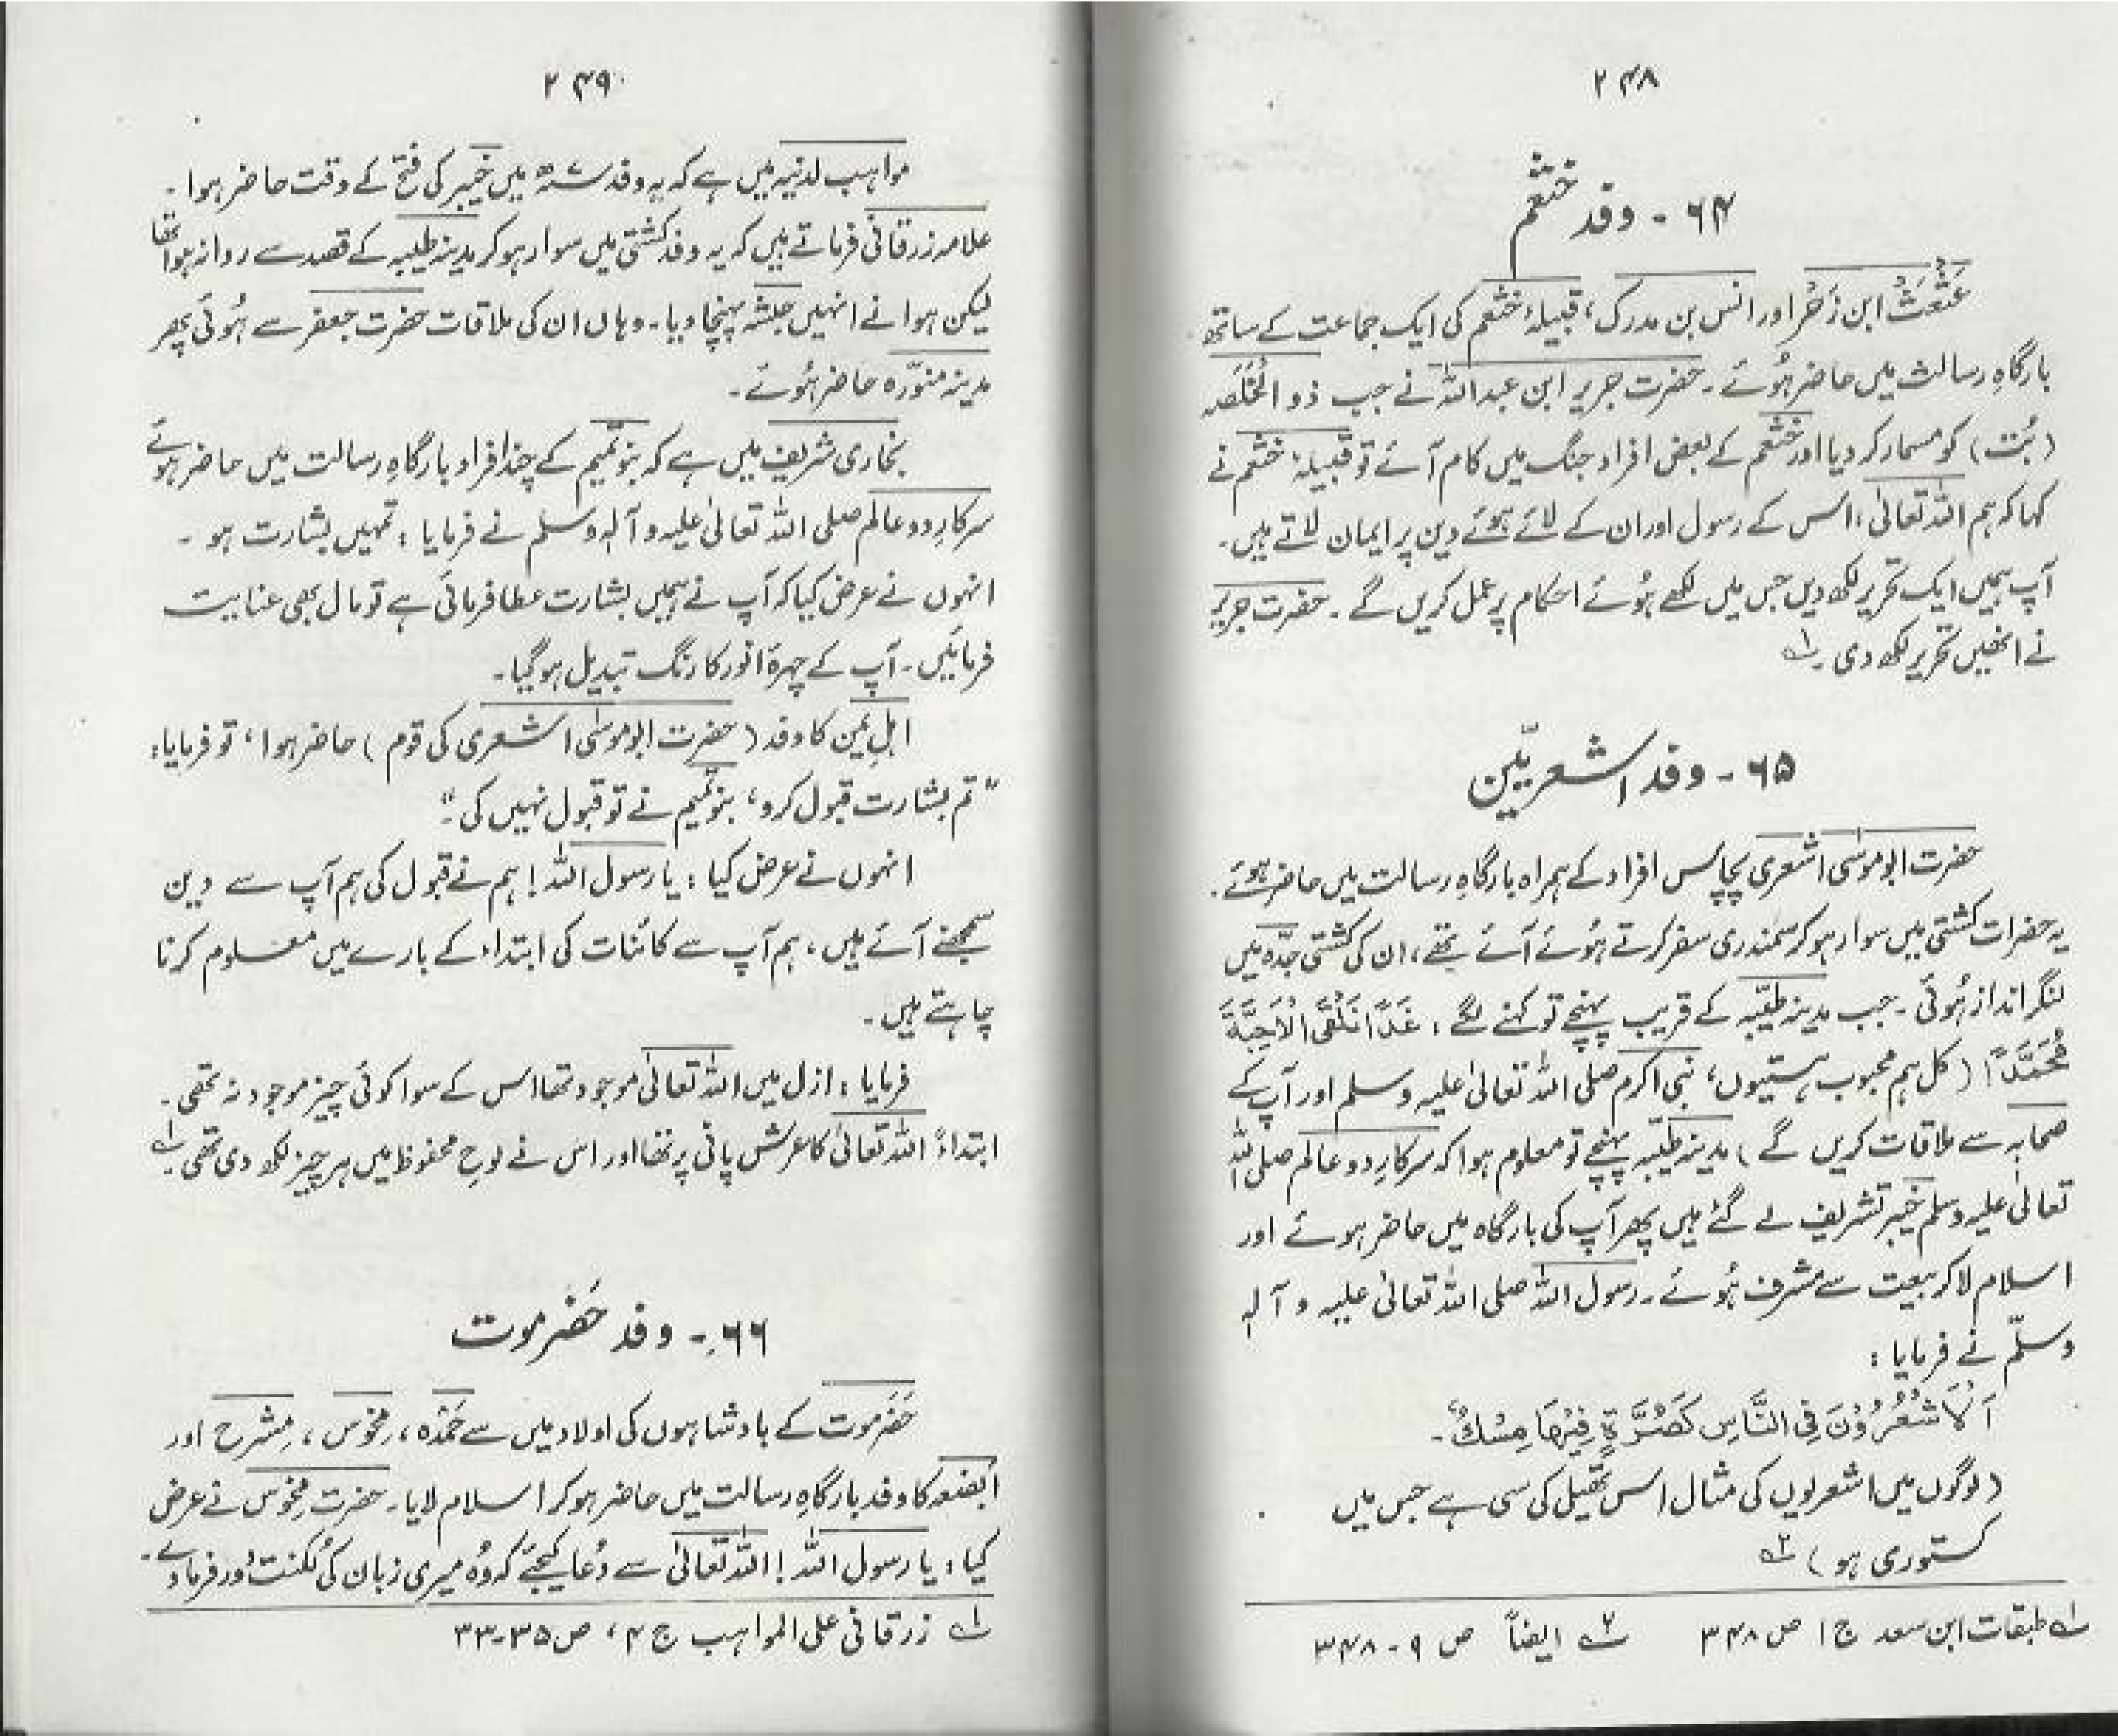 ۲۴۸
۶۴ - وفد خثعم
عَثْعَثُ ابن زَحْر اور انس بن مدرک، قبیلۂ خثعم کی ایک جماعت کے ساتھ
بارگاہِ رسالت میں حاضر ہُوئے۔ حضرت جریر ابن عبداللہ نے جب ذوالْخَلَصَہ
(بُت) کو مسمار کر دیا اور خثعم کے بعض افراد جنگ میں کام آئے تو قبیلۂ خثعم نے
کہا کہ ہم اللہ تعالیٰ، اس کے رسول اور ان کے لائے ہوئے دین پر ایمان لاتے ہیں۔
آپ ہمیں ایک تحریر لکھ دیں جس میں لکھے ہُوئے احکام پر عمل کریں گے۔ حضرت جریر
نے انھیں تحریر لکھ دی۔ ؂۱
۶۵ - وفد اشعریّین
حضرت ابو موسٰی اشعری پچاس افراد کے ہمراہ بارگاہِ رسالت میں حاضر ہوئے۔
یہ حضرات کشتی میں سوار ہو کر سمندری سفر کرتے ہُوئے آئے تھے، ان کی کشتی جدّہ میں
لنگر انداز ہُوئی۔ جب مدینہ طیّبہ کے قریب پہنچے تو کہنے لگے: غَدًا نَلْقَی الْاَحِبَّةَ
مُحَمَّدًا (کل ہم محبوب ہستیوں، نبی اکرم صلی اللہ تعالیٰ علیہ وسلم اور آپ کے
صحابہ سے ملاقات کریں گے) مدینہ طیّبہ پہنچے تو معلوم ہوا کہ سرکارِ دو عالم صلی اللہ
تعالیٰ علیہ وسلم خیبر تشریف لے گئے ہیں پھر آپ کی بارگاہ میں حاضر ہوئے اور
اسلام لا کر بیعت سے مشرف ہُوئے۔ رسول اللہ صلی اللہ تعالیٰ علیہ و آلہٖ
وسلّم نے فرمایا:
اَلْاَشْعُرُوْنَ فِی النَّاسِ کَصُرَّةٍ فِیْهَا مِسْكٌ۔
(لوگوں میں اشعریوں کی مثال اس تھیلی کی سی ہے جس میں
کستوری ہو) ؂۲
؂۱ طبقات ابن سعد ج ۱ ص ۳۴۸ ؂۲ ایضاً ص ۹ - ۳۴۸
۲۴۹
مواہب لدنیہ میں ہے کہ یہ وفد ۷ھ میں خیبر کی فتح کے وقت حاضر ہوا۔
علامہ زرقانی فرماتے ہیں کہ یہ وفد کشتی میں سوار ہو کر مدینہ طیبہ کے قصد سے روانہ ہوا تھا
لیکن ہوا نے انہیں حبشہ پہنچا دیا۔ وہاں ان کی ملاقات حضرت جعفر سے ہُوئی پھر
مدینہ منوّرہ حاضر ہُوئے۔
بخاری شریف میں ہے کہ بنو تمیم کے چند افراد بارگاہِ رسالت میں حاضر ہوئے
سرکارِ دو عالم صلی اللہ تعالیٰ علیہ و آلہٖ وسلم نے فرمایا: تمہیں بشارت ہو۔
انہوں نے عرض کیا کہ آپ نے ہمیں بشارت عطا فرمائی ہے تو مال بھی عنایت
فرمائیں۔ آپ کے چہرۂ انور کا رنگ تبدیل ہو گیا۔
اہلِ یمن کا وفد (حضرت ابو موسٰی اشعری کی قوم) حاضر ہوا، تو فرمایا:
"تم بشارت قبول کرو، بنو تمیم نے تو قبول نہیں کی۔"
انہوں نے عرض کیا: یا رسول اللہ! ہم نے قبول کی ہم آپ سے دین
سمجھنے آئے ہیں، ہم آپ سے کائنات کی ابتداء کے بارے میں معلوم کرنا
چاہتے ہیں۔
فرمایا: ازل میں اللہ تعالیٰ موجود تھا اس کے سوا کوئی چیز موجود نہ تھی۔
ابتداءً اللہ تعالیٰ کا عرش پانی پر تھا اور اس نے لوحِ محفوظ میں ہر چیز لکھ دی تھی۔ ؂۱
۶۶ - وفد حَضرموت
حَضَرموت کے بادشاہوں کی اولاد میں سے حَمْدَہ، مِخْوَس، مِشْرَح اور
اَبْضَعَہ کا وفد بارگاہِ رسالت میں حاضر ہو کر اسلام لایا۔ حضرت مِخْوَس نے عرض
کیا: یا رسول اللہ! اللہ تعالیٰ سے دُعا کیجئے کہ وُہ میری زبان کی لُکنت دُور فرما دے۔
؂۱ زرقانی علی المواہب ج ۴، ص ۳۵-۳۳